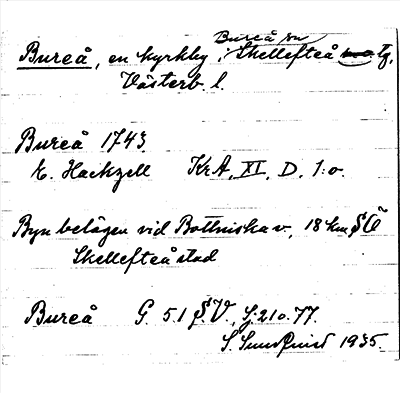 Bureå sn
Bureå, en kyrkby i Skellefteå tg,
Västerb. l.
Bureå 1743
E. Hackzell KrA, XI, D, 1:o.
Byn belägen vid Bottniska v, 18 km SÖ
Skellefteå stad
Bureå G. 51 S.V., S:210.77.
S. Sundqvist 1935.